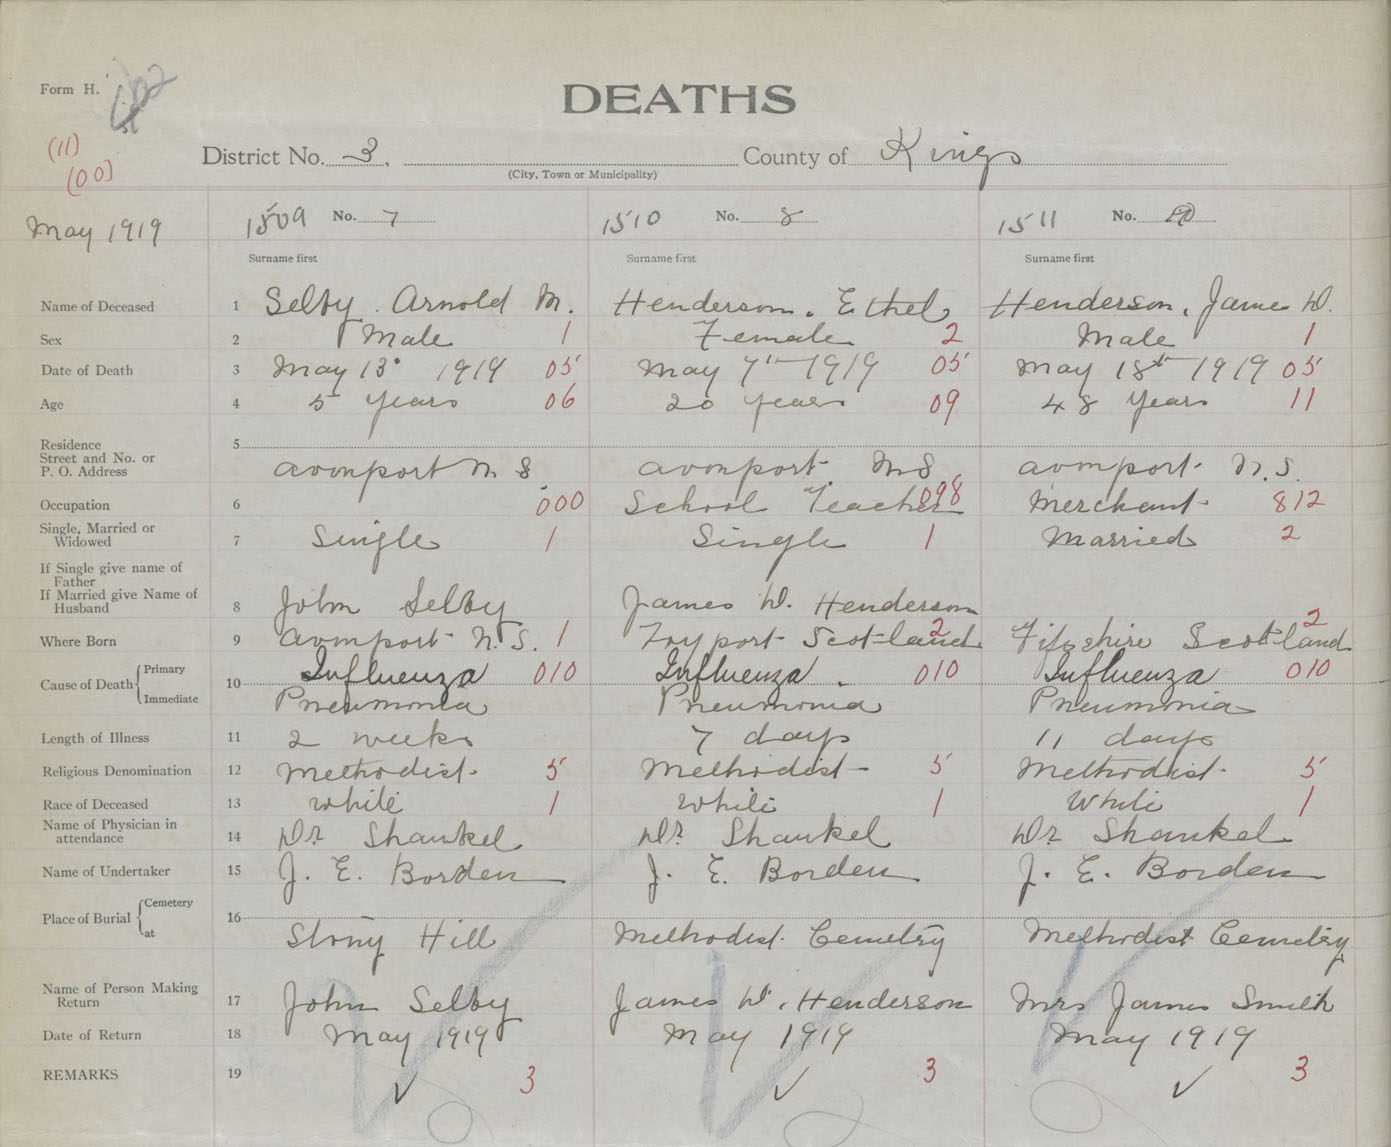 Form H.
DEATHS
(11)
(00)
District No. 3. County of Kings
(City, Town or Municipality)
May 1919
1509 No. 7 1510 No. 8 1511 No.
Surname first Surname first Surname first
Name of Deceased 1 Selby. Arnold M. Henderson. Ethel Henderson, James W.
Sex 2 Male 1 Female 2 Male 1
Date of Death 3 May 13 1919 05 May 7th 1919 05 May 18th 1919 05
Age 4 5 Years 06 20 years 09 48 Years 11
Residence
Street and No. or
P. O. Address 5 avonport N.S. avonport N.S avonport N.S.
Occupation 6 000 School Teacher 098 Merchant 812
Single, Married or
Widowed 7 Single 1 Single 1 Married 2
If Single give name of
Father
If Married give Name of
Husband 8 John Selby James W. Henderson
Where Born 9 avonport N.S. 1 Scotland 2 Scotland 2
Cause of Death Primary 10 Influenza 010 Influenza 010 Influenza 010
Immediate Pneumonia Pneumonia Pneumonia
Length of Illness 11 2 weeks 7 days 11 days
Religious Denomination 12 Methodist 5 Methodist 5 Methodist 5
Race of Deceased 13 White 1 White 1 White 1
Name of Physician in
attendance 14 Dr. Shankel Dr. Shankel Dr. Shankel
Name of Undertaker 15 J. E. Borden J. E. Borden J. E. Borden
Place of Burial Cemetery 16
at Stony Hill Methodist Cemetry Methodist Cemetry
Name of Person Making
Return 17 John Selby James W. Henderson Mrs James Smith
Date of Return 18 May 1919 May 1919 May 1919
REMARKS 19 ✓ 3 ✓ 3 ✓ 3